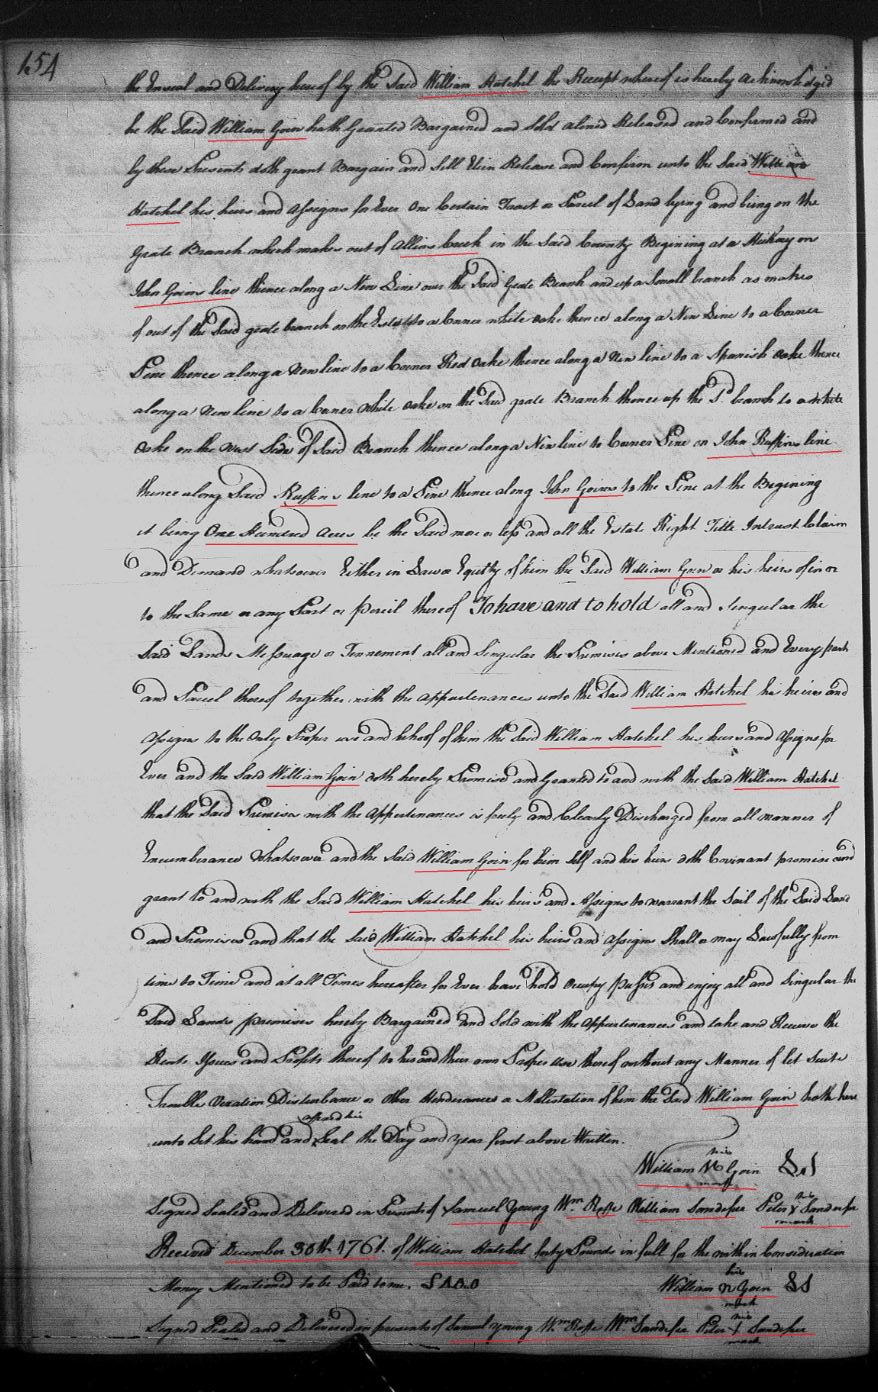 154
the Enseal and Delivery hereof by the Said William Hatchel the Receipt whereof is hereby acknowledged
he the Said William Goin hath Granted Bargained and Sold aliened Released and Confirmed and
by these Presents doth grant Bargain and Sell Elien Release and Confirm unto the Said William
Hatchel his heirs and assigns for Ever One Certain Tract or Parcel of Land lying and being on the
Grate Branch which makes out of Allins Creek in the Said County Begining at a Hickory on
John Goens line thence along a New Line over the Said Grate Branch and up a Small branch as makes
of out of the Said grate branch on the East to a Corner white oake thence along a New Line to a Corner
Pine thence along a New line to a Corner Red oake thence along a New line to a Spanish oake thence
along a New line to a Corner White oake on the Said grate Branch thence up the Sd branch to a white
oake on the West Side of Said Branch thence along a New line to Corner Pine on John Ruffins line
thence along Said Ruffins line to a Pine thence along John Goins to the Pine at the Begining
it being One Hundred Acres be the Said more or less and all the Estate Right Title Intrest Claim
and Demand whatsoever Either in Law or Equity of him the Said William Goin or his heirs of in or
to the Same or any Part or parcil thereof To have and to hold all and Singular the
Said Lands Messuage or Tennement all and Singular the Premises above Mentioned and Every part
and Parcel thereof together with the appurtenances unto the Said William Hatchel his heirs and
assigns to the Only Proper use and behoof of him the Said William Hatchel his heirs and assigns for
Ever and the Said William Goin doth hereby Promised and Granted to and with the Said William Hatchel
that the Said Premises with the appurtenances is freely and Clearly Discharged from all manner of
Encumberance whatsoever and the Said William Goin for him Self and his heirs doth Covinant promise and
grant to and with the Said William Hatchel his heirs and Assigns to warrant the Sail of the Said Land
and Premises and that the Said William Hatchel his heirs and assigns Shall or may Lawfully from
time to Time and at all Times hereafter for Ever have hold occupy possess and enjoy all and Singular the
Said Lands premises hereby Bargained and Sold with the appurtenances and take and Receive the
Rents Issues and Profits thereof to his and their own Proper Use thereof without any Manner of let Suite
Trouble Vexation Disturbance or other Henderances or Mollestation of him the Said William Goin hath here
unto Set his hand and affixed his Seal the Day and year first above Written.
William his M mark Goin LS
Signed Sealed and Delivered in Presents of Samuel Young Wm Rose William Sandefer Peter his X mark Sandefer
Received December 30th 1761. of William Hatchel forty Pounds in full for the within Consideration
Money Mentioned to be Paid to me.
William his mark Goin LS
Signed Sealed and Delivered in presents of Samuel Young Wm Rose Wm Sandefer Peter his X mark Sandefer